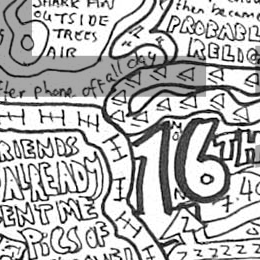 SHARK FIN
OUTSIDE
TREES
AIR
then became
PROBABL
RELIG
fter phone off all day
16TH
7.40
RIENDS
ALREADY
ENT ME
PICS OF